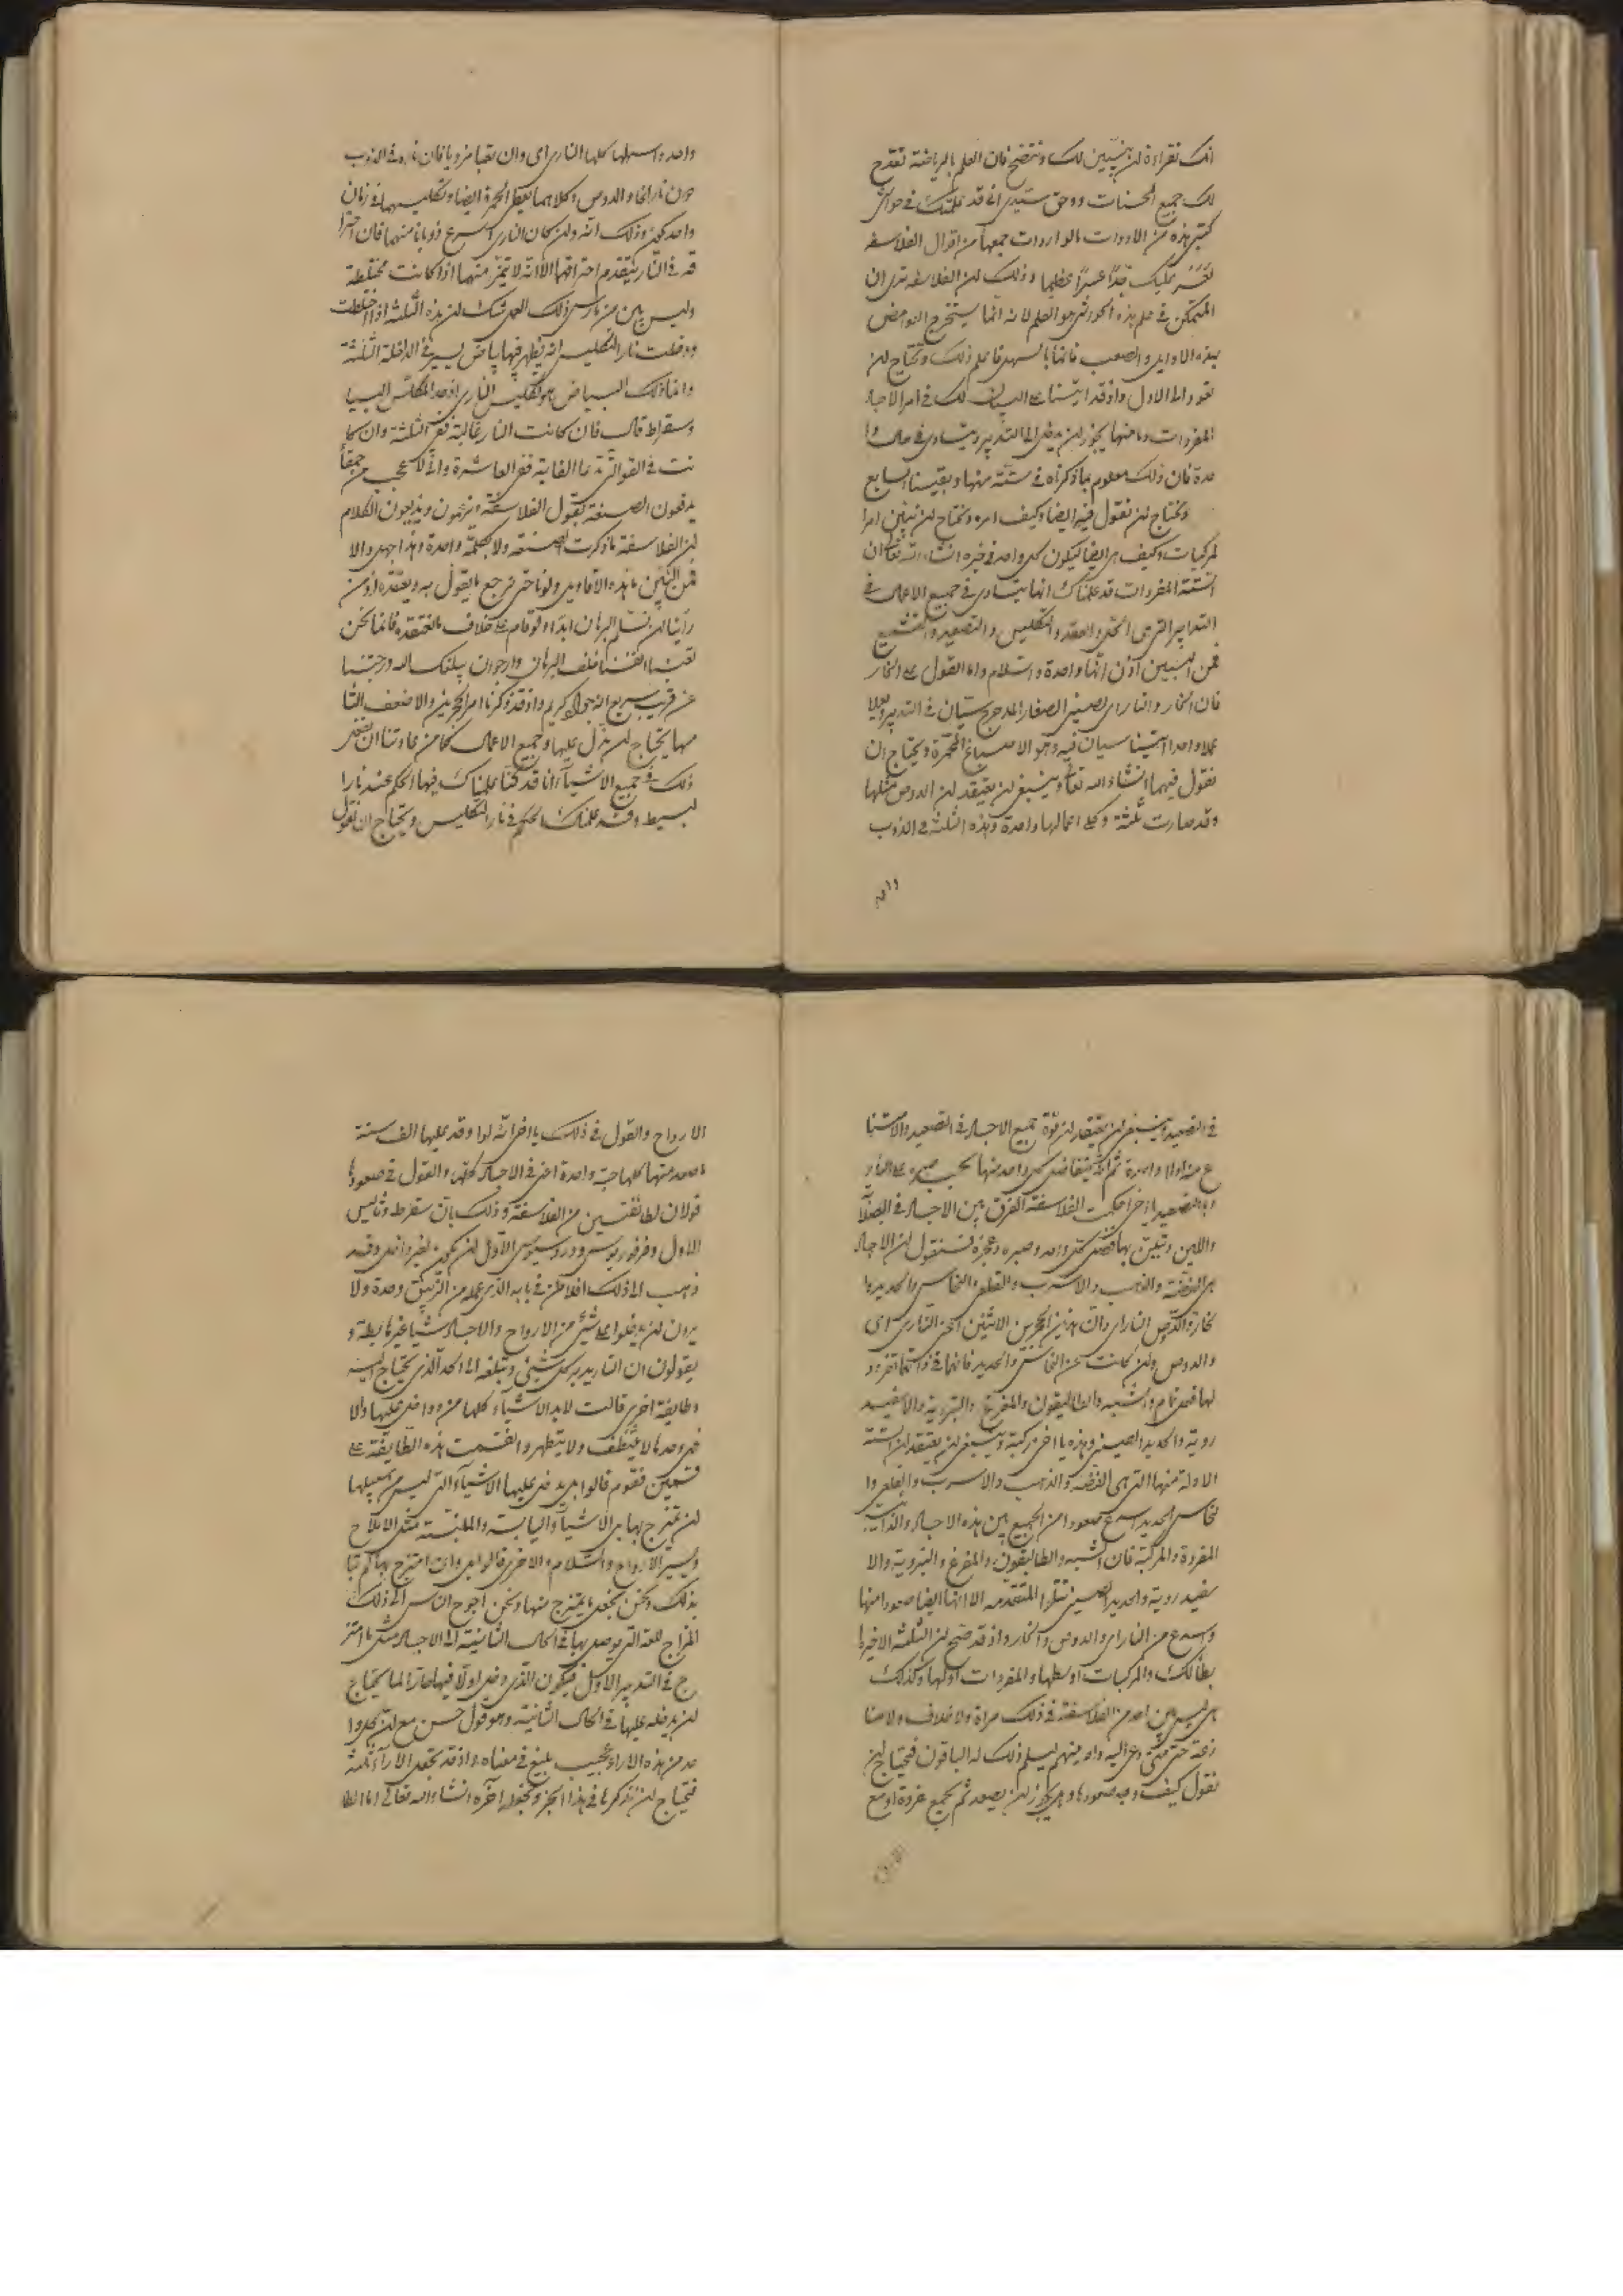 انك تقراءة لن يتبين لك وتتضح فان العلم بالرياضة تقدح
لك جميع الحسنات ووحق سيدى انى قد علمتك فى حواشى
كتبى هذه من الادوات بالواردات جمعها من اقوال الفلاسفة
تعسر عليك جدا عسرا عظيما وذلك لن الفلاسفة ترى ان
المتمكن فى علم هذه هو العلم لانه انما يستخرج الغوامض
بهذه الاوايل والصعب فانما بالسهل فاعلم ذلك ونحتاج لن
نعود الى الاول واذ قد اتينا على البيان لك فى امر الاجساد
المفردات وما منها يجوز لن يدخل الى التدبير ويتساوى فى حال وا
حدة فان ذلك معلوم بما ذكرناه فى ستة منها وبقينا السابع
ونحتاج لن نقول فيه ايضا وكيف امره ونحتاج لن نبين امر ا
لمركبات وكيف هى ايضا ليكون كل واحد فى خبره انشاء الله تعالى ان
الستة المفردات قد علمناك انها تتساوى فى جميع الاعمال فى
التدابير التى هى الحل والعقد والتكليس والتصعيد والتشميع
فمن المبين اذن انها واحدة والسلام واما القول على الخار
فان الخار والنارى الصينى الصغار المدحرج سيان فى التدبير ويعملا
عملا واحدا سيان فيه وهو الاصباغ المحمرة ويحتاج ان
نقول فيهما انشاء الله تعالى وينبغى لن يعتقد لن الدوص مثلها
وقد صارت ثلثة وكل اعمالها واحدة وهذه الثلثة فى الذوب
واحد
واحد واسهلها كلها النارى اى وان تعبا مزويا فان ناره فى الذوب
دون نار الخار والدوص وكلاهما يعمل الحمرة ايضا وتكليسهما فى زمان
واحد يمكن وذلك انه ولن كان النارى اسرع ذوبانا منهما فان احترا
قه فى النار يتقدم احتراقهما الا انه لا يتميز منهما اذا كانت مختلطة
وليس بين من مارس ذلك العمل شك لن هذه الثلثة اذا اختلطت
ودخلت نار التكليس انه يظهر فيها بياض يسير فى الداخلة الثلثة
وانما ذلك البياض هو تكليس النارى اذ حد المكلس البيا
وسقراط قال فان كانت النار غالبة ففى الثلثة وان كا
نت فى القوالتى غا الغاية ففى العاشرة وانى لاعجب من حمقا
يدفعون الصنعة بقول الفلاسفة ويزعمون ويذيعون الكلام
لن الفلاسفة ما ذكرت الصنعة ولا بكلمة واحدة وهذا جهل والا
فمن البين ما هذه الاقاويل ولو ناحتى نرجع ما يقول به ويعتقده اذ من
راينا لن نسلم البرهان ابدا ولو قام على خلاف ما نعتقده فانما نحن
تعبنا انفسنا خلف البرهان وارجو ان يبلغك الله درجتنا
عن قريب سريع انه جواد كريم واذ قد ذكرنا امر الحجرين والاضعف الثا
منها يحتاج لن ندل عليها وجميع الاعمال كما من عادتنا ان نفعل
ذلك فى جميع الاشياء انا قد كنا علمناك فيها الحكم عند نارا
لبسيط وقد علمناك الحكم فى نار التكليس ويحتاج ان نقول
فى التصعيد وينبغى لن يعتقد لن قوة جميع الاجساد فى التصعيد والامتنا
ع منه اولا واحدة ثم انه يتفاضل كل واحد منها بحسب صبره على النار و
وبالتصعيد يا اخى احكمت الفلاسفة الفرق بين الاجساد فى الصلابة
واللين وتبين بها فضل كل واحد وصبره وعجزه فنقول لن الاجساد
هى الفضة والذهب والاسرب والقلعى والنحاس والحديد وا
لخار والدوص النارى وان هذين الحجرين الاثنين اعنى النارى اى
والدوص ولن كانت عن النحاس والحديد فانهما فى ذاتهما تفرد و
لها فعل تام والشبه والطاليقون والمفرغ والتبروية والاسفيد
روية والحديد الصينى وهذه يا اخى مركبة وينبغى لن يعتقد لن الستة
الاولة منها التى هى الفضة والذهب والاسرب والقلعى وا
لنحاس الحديد اسرع صعودا من الجميع بين هذه الاجساد والذائبة
المفردة والمركبة فان الشبه والطاليقون والمفرغ والتبروية والا
سفيد روية والحديد الصينى تتلوا المتقدمة الا انها ايضا صعودا منها
واسرع من النارى والدوص والخار واذ قد صح لن الثلثة الاخيرة ا
بطا لكك والمركبات اوسطها والمفردات اولها وكذلك
هى ليس بين احد من الفلاسفة فى ذلك مراة ولا خلاف ولا منا
زعة حتى متى دعى اليه واحد منهم ليسلم ذلك له الباقون فنحتاج لن
نقول كيف وجه صعودها وهل يجوز لن يصعد ثم يجمع فردة او مع
الارواح
الارواح والقول فى ذلك يا اخى انه لو اوقد عليها الف سنة
ما صعد منها كلها حبة واحدة اعنى فى الاجساد كلها والقول فى صعودها
قولان لطائفتين من الفلاسفة وذلك بان سقراط وثاليس
الاول وفرفوريوس ودروسيوس الاول لن يكون لغير وانى وقد
ذهب الى ذلك افلاطن فى بابه الذى عمله من الزيبق وحدة ولا
يرون لن يدخلوا على شئ من الارواح والاجساد شيئا غير ما يطه و
يقولون ان النار يدبر كل شئ وتبلغه الى الحد الذى يحتاج اليه
وطايفة اخرى قالت لابد الاشياء كلها من دواخل عليها والا
فهى وحدها لا تتنظف ولا يتطهر وانقسمت هذه الطايفة على
قسمين فقوم قالوا بل يدخل عليها الاشياء التى ليس من سبيلها
لن تمتزج بها هى الاشياء واليابسة والملبسة مثل الاملاح
وليسير الارواح والسلام والاخرى قالوا بل وان امتزج بها لم نبا
بذلك ونحن نجعل ما يمتزج منها ونحن احوج الناس الى ذلك
المزاج للعلة التى يوصل بها فى الحال الثانية الى الاجساد مثل ما امتز
ج فى التدبير الاول فيكون الذى دخل اولا فيها جارا لما يحتاج
لن يدخله عليها فى الحال الثانية وهو قول حسن مع لن كل وا
حد من هذه الاراء عجيب بليغ فى معناه واذ قد تجعل الاراء ثلثة
فنحتاج لن نذكرها فى هذا الجزء ونجعله آخره انشاء الله تعالى اما الطا